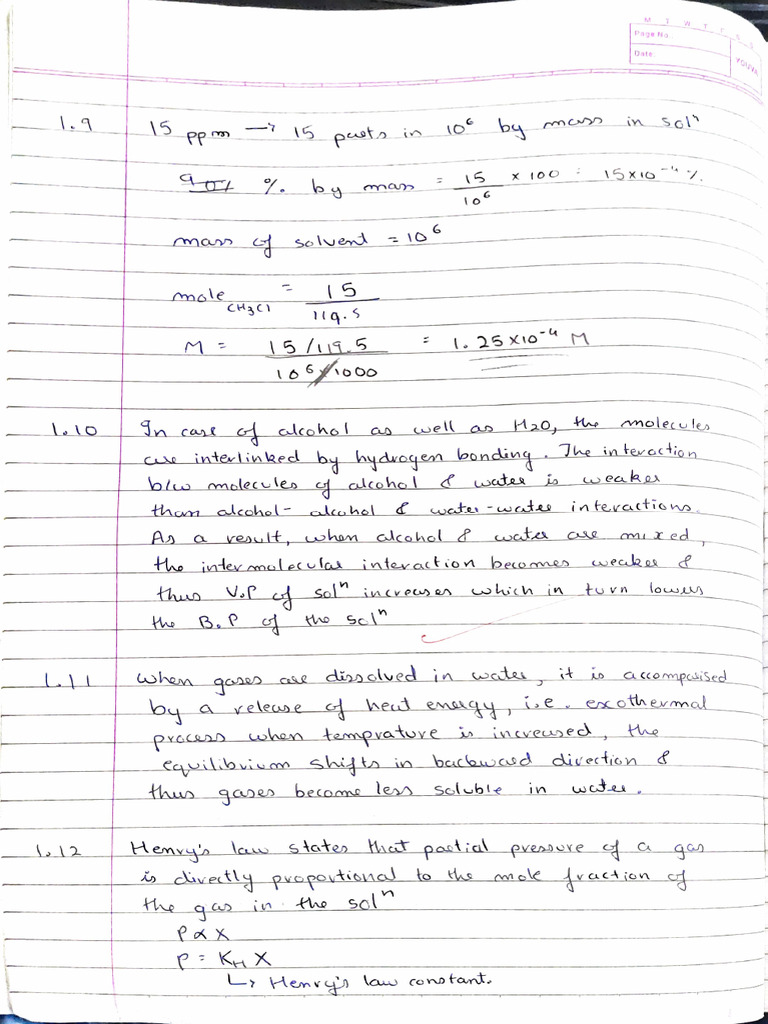 M T W T F S S
Page No.
Date:
YOUVA
1.9 15 ppm → 15 parts in 10⁶ by mass in solⁿ
% by mass = 15/10⁶ × 100 = 15×10⁻⁴ %.
mass of solvent = 10⁶
mole CH3Cl = 15/119.5
M = 15/119.5 / 10⁶ × 1000 = 1.25×10⁻⁴ M
1.10 In case of alcohol as well as H2O, the molecules
are interlinked by hydrogen bonding. The interaction
b/w molecules of alcohol & water is weaker
than alcohol-alcohol & water-water interactions.
As a result, when alcohol & water are mixed,
the intermolecular interaction becomes weaker &
thus V.P of solⁿ increases which in turn lowers
the B.P of the solⁿ
1.11 When gases are dissolved in water, it is accompanised
by a release of heat energy, i.e. exothermal
process when temprature is increased, the
equilibrium shifts in backward direction &
thus gases become less soluble in water.
1.12 Henry's law states that partial pressure of a gas
is directly proportional to the mole fraction of
the gas in the solⁿ
P ∝ X
P = KH X
↳ Henry's law constant.